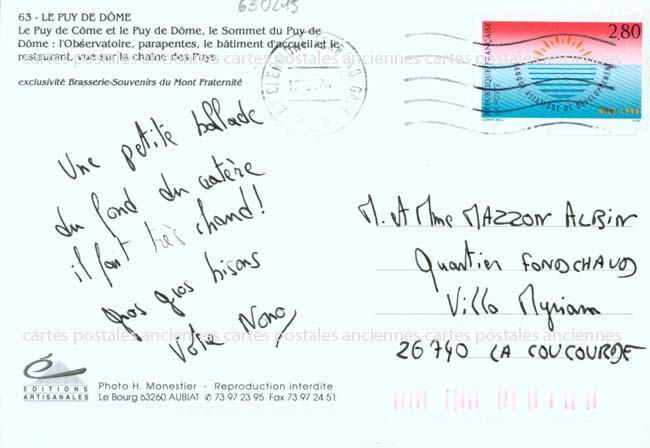 630215
63 - LE PUY DE DÔME
Le Puy de Côme et le Puy de Dôme, le Sommet du Puy de
Dôme : l'Observatoire, parapentes, le bâtiment d'accueil et le
restaurant, vue sur la chaîne des Puys.
exclusivité Brasserie-Souvenirs du Mont Fraternité
2,80
REPUBLIQUE FRANÇAISE
LA POSTE
BANQUE ASIATIQUE DE DEVELOPPEMENT
Nice 1994
cartes postales anciennes cartes postales anciennes cartes postales anciennes
Une petite ballade
du fond du cratère
il fait très chaud!
gros gros bisous
Votre Nono
M. et Mme MAZZON ALBIN
Quartier FONDCHAUD
Villa Myriam
26740 LA COUCOURDE
cartes postales anciennes cartes postales anciennes cartes postales anciennes
é
EDITIONS
ARTISANALES
Photo H. Monestier - Reproduction interdite
Le Bourg 63260 AUBIAT ✆ 73 97 23 95 Fax 73 97 24 51